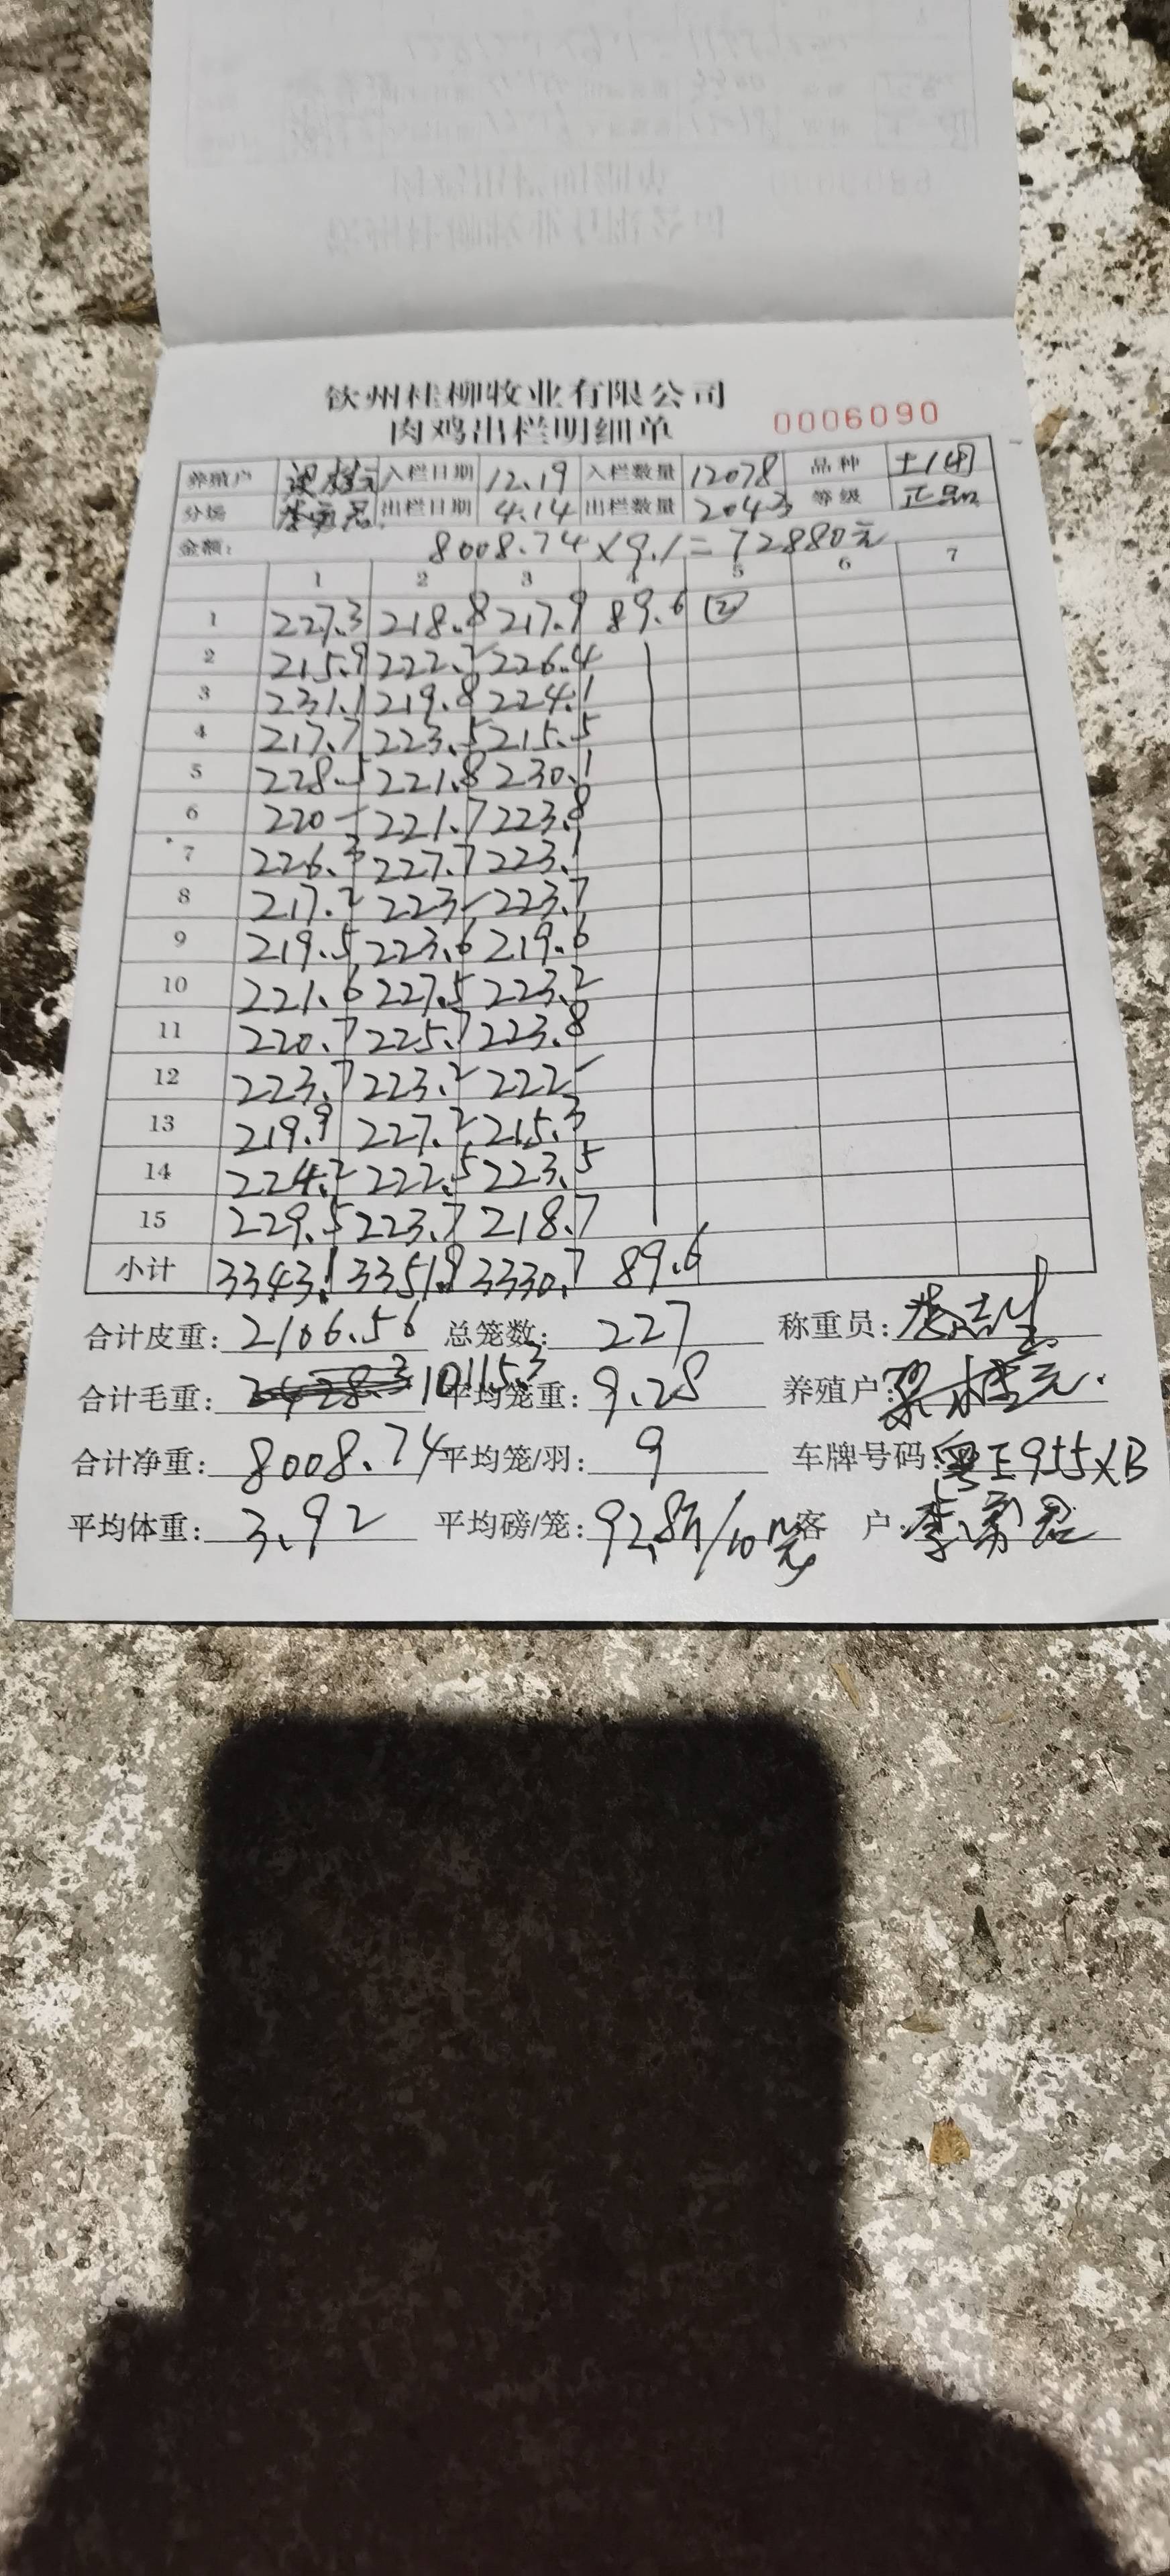 钦州桂柳牧业有限公司
肉鸡出栏明细单 0006090
养殖户 入栏日期 12.19 入栏数量 12078 品种 土1(4)
分场 出栏日期 4.14 出栏数量 2043 等级 正品
金额: 8008.74×9.1=72880元
1 2 3 4 5 6 7
1 227.3 218.8 217.9 89.6 ②
2 215.9 222.2 226.4
3 231.1 219.8 224.1
4 217.7 223.5 215.5
5 228.5 221.8 230.1
6 220- 221.7 223.8
7 226.3 227.7 223.1
8 217.2 223- 223.7
9 219.5 223.6 219.6
10 221.6 227.5 223.2
11 220.7 225.7 223.8
12 223.7 223.2 222-
13 219.9 227.2 215.3
14 224.2 222.5 223.5
15 229.5 223.7 218.7
小计 3343.1 3351.9 3330.7 89.6
合计皮重: 2106.56 总笼数: 227 称重员:
合计毛重: 10115.3 平均笼重: 9.28 养殖户:
合计净重: 8008.74 平均笼/羽: 9 车牌号码: 粤E955XB
平均体重: 3.92 平均磅/笼: 92.8斤/10 客 户: 李勇君